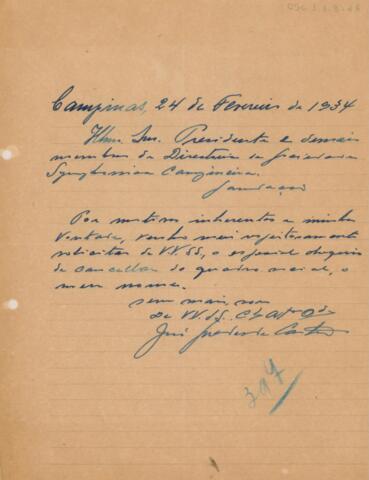 Campinas, 24 de Fevereiro de 1934
Illmo. Snr. Presidente e demais
membros da Directoria da Sociedade
Symphonica Campineira.
Saudações
Por motivos inherentes a minha
vontade, venho mui respeitosamente
solicitar de VV. SS., o especial obsequio
de cancellar do quadro social, o
meu nome.
Sem mais, sou
de VV. SS. Cr. Att. Obr.
José de Castro
397